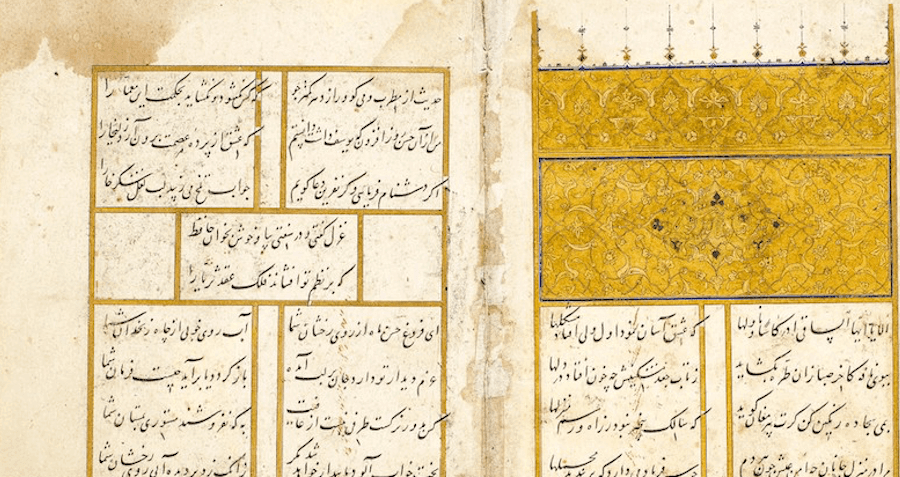 الا یا ایها الساقی ادر کاسا و ناولها که عشق آسان نمود اول ولی افتاد مشکلها
ببوی نافه کاخر صبا زان طره بکشاید ز تاب جعد مشکینش چه خون افتاد در دلها
بمی سجاده رنکین کن کرت پیر مغان کوید که سالک بی خبر نبود ز راه و رسم منزلها
مرا در منزل جانان چه امن عیش چون هر دم جرس فریاد می دارد که بربندید محملها
حدیث از مطرب و می کو و راز دهر کمتر جو که کس نکشود و نکشاید بحکمت این معما را
من از آن حسن روز افزون که یوسف داشت دانستم که عشق از پرده عصمت برون آرد زلیخا را
اکر دشنام فرمایی و کر نفرین دعا کویم جواب تلخ می زیبد لب لعل شکرخا را
غزل کفتی و در سفتی بیا و خوش بخوان حافظ
که بر نظم تو افشاند فلک عقد ثریا را
ای فروغ حسن ماه از روی رخشان شما آب روی خوبی از چاه زنخدان شما
عزم دیدار تو دارد جان بر لب آمده باز کردد یا برآید چیست فرمان شما
کس بدور نرکست طرفی نبست از عافیت به که نفروشند مستوری بمستان شما
بخت خواب آلود ما بیدار خواهد شد مکر زانک زد بر دیده آبی روی رخشان شما